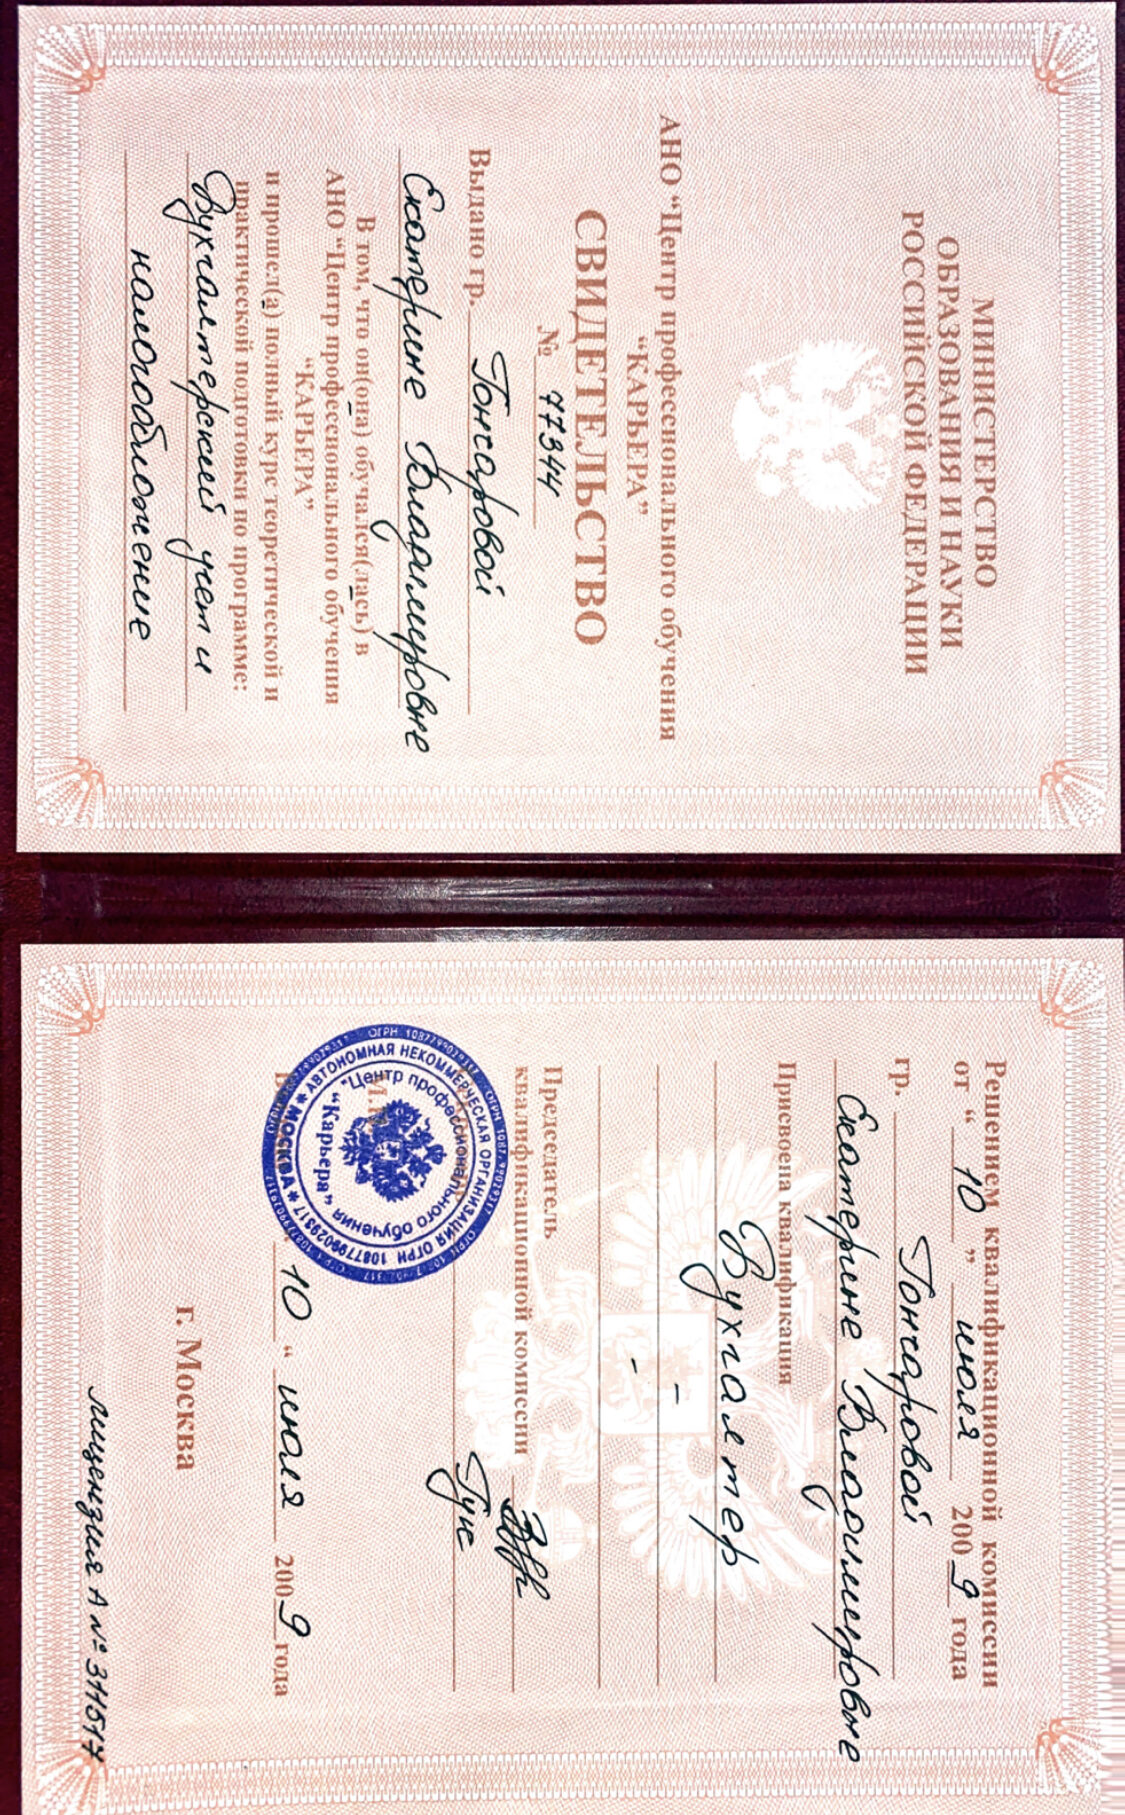 МИНИСТЕРСТВО
ОБРАЗОВАНИЯ И НАУКИ
РОССИЙСКОЙ ФЕДЕРАЦИИ
АНО “Центр профессионального обучения
“КАРЬЕРА”
СВИДЕТЕЛЬСТВО
№ 77344
Выдано гр. Гончаровой
Екатерине Владимировне
В том, что он(она) обучался(лась) в
АНО “Центр профессионального обучения
“КАРЬЕРА”
и прошел(а) полный курс теоретической и
практической подготовки по программе:
Бухгалтерский учет и
налогообложение
Решением квалификационной комиссии
от “ 10 ” июля 2009 года
гр. Гончаровой
Екатерине Владимировне
Присвоена квалификация
Бухгалтер
Председатель
квалификационной комиссии
10 “ июля 2009 года
г. Москва
лицензия А № 311517
АВТОНОМНАЯ НЕКОММЕРЧЕСКАЯ ОРГАНИЗАЦИЯ ОГРН 1087799029317 * МОСКВА *
"Центр профессионального обучения
“Карьера”